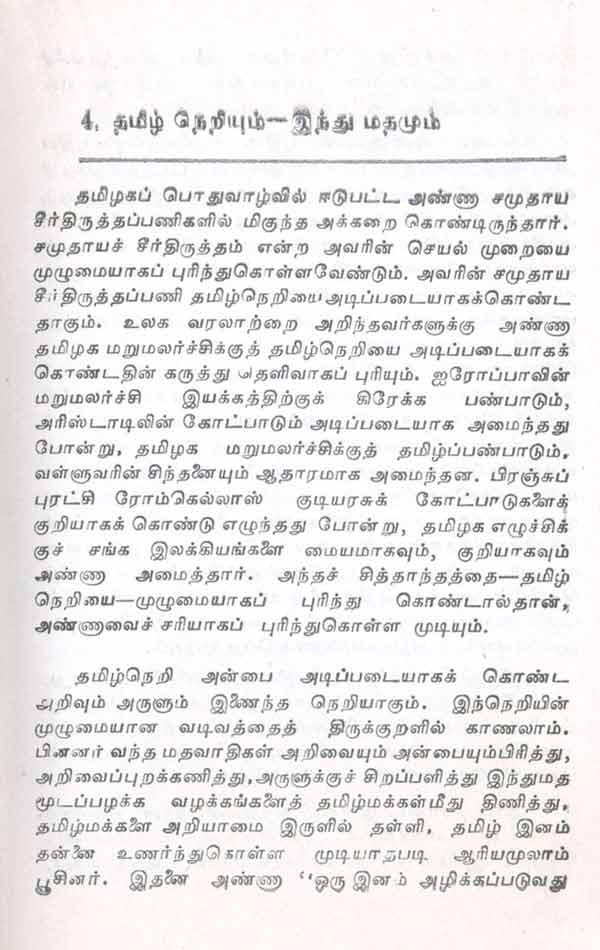 4. தமிழ் நெறியும்—இந்து மதமும்
தமிழகப் பொதுவாழ்வில் ஈடுபட்ட அண்ணா சமுதாய
சீர்திருத்தப்பணிகளில் மிகுந்த அக்கறை கொண்டிருந்தார்.
சமுதாயச் சீர்திருத்தம் என்ற அவரின் செயல் முறையை
முழுமையாகப் புரிந்துகொள்ளவேண்டும். அவரின் சமுதாய
சீர்திருத்தப்பணி தமிழ்நெறியை அடிப்படையாகக்கொண்ட
தாகும். உலக வரலாற்றை அறிந்தவர்களுக்கு அண்ணா
தமிழக மறுமலர்ச்சிக்குத் தமிழ்நெறியை அடிப்படையாகக்
கொண்டதின் கருத்து தெளிவாகப் புரியும். ஐரோப்பாவின்
மறுமலர்ச்சி இயக்கத்திற்குக் கிரேக்க பண்பாடும்,
அரிஸ்டாடிலின் கோட்பாடும் அடிப்படையாக அமைந்தது
போன்று, தமிழக மறுமலர்ச்சிக்குத் தமிழ்ப்பண்பாடும்,
வள்ளுவரின் சிந்தனையும் ஆதாரமாக அமைந்தன. பிரஞ்சுப்
புரட்சி ரோம்கெல்லாஸ் குடியரசுக் கோட்பாடுகளைக்
குறியாகக் கொண்டு எழுந்தது போன்று, தமிழக எழுச்சிக்
குச் சங்க இலக்கியங்களை மையமாகவும், குறியாகவும்
அண்ணா அமைத்தார். அந்தச் சித்தாந்தத்தை—தமிழ்
நெறியை—முழுமையாகப் புரிந்து கொண்டால்தான்,
அண்ணாவைச் சரியாகப் புரிந்துகொள்ள முடியும்.
தமிழ்நெறி அன்பை அடிப்படையாகக் கொண்ட
அறிவும் அருளும் இணைந்த நெறியாகும். இந்நெறியின்
முழுமையான வடிவத்தைத் திருக்குறளில் காணலாம்.
பின்னர் வந்த மதவாதிகள் அறிவையும் அன்பையும்பிரித்து,
அறிவைப்புறக்கணித்து,அருளுக்குச் சிறப்பளித்து இந்துமத
மூடப்பழக்க வழக்கங்களைத் தமிழ்மக்கள்மீது திணித்து,
தமிழ்மக்களை அறியாமை இருளில் தள்ளி, தமிழ் இனம்
தன்னை உணர்ந்துகொள்ள முடியாதபடி ஆரியமுலாம்
பூசினர். இதனை அண்ணா ‘‘ஒரு இனம் அழிக்கப்படுவது